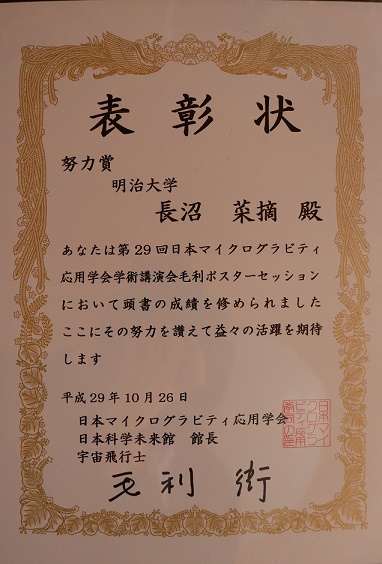 表彰状
努力賞
明治大学
長沼 菜摘 殿
あなたは第29回日本マイクログラビティ
応用学会学術講演会毛利ポスターセッション
において頭書の成績を修められました
ここにその努力を讃えて益々の活躍を期待
します
平成29年10月26日
日本マイクログラビティ応用学会
日本科学未来館 館長
宇宙飛行士
毛利 衛